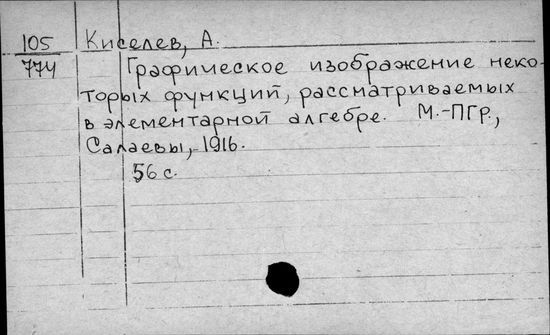 105 Киселев, А.
774 Графическое изображение неко-
торых функций, рассматриваемых
в элементарной алгебре. М.-ПГр.,
Салаевы, 1916.
56 с.